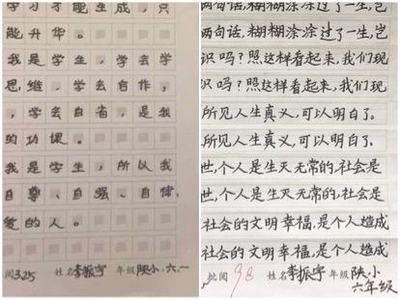 学习才能生成,只
能升华。
我是学生,学会学
思维,学会合作,
,学会自省,是我
的功课。
我是学生,所以我
自尊、自强、自律,
爱的人。
阅 325 姓名 李振宇 年级 陕小.六.一
两句话,糊糊涂涂过了一生,岂
两句话,糊糊涂涂过了一生,岂
识吗?照这样看起来,我们现
识吗?照这样看起来,我们现
所见人生真义,可以明白了。
所见人生真义,可以明白了。
世,个人是生灭无常的,社会是
世,个人是生灭无常的,社会是
社会的文明幸福,是个人造成
社会的文明幸福,是个人造成
批阅 98 姓名 李振宇 年级 陕小
六年级